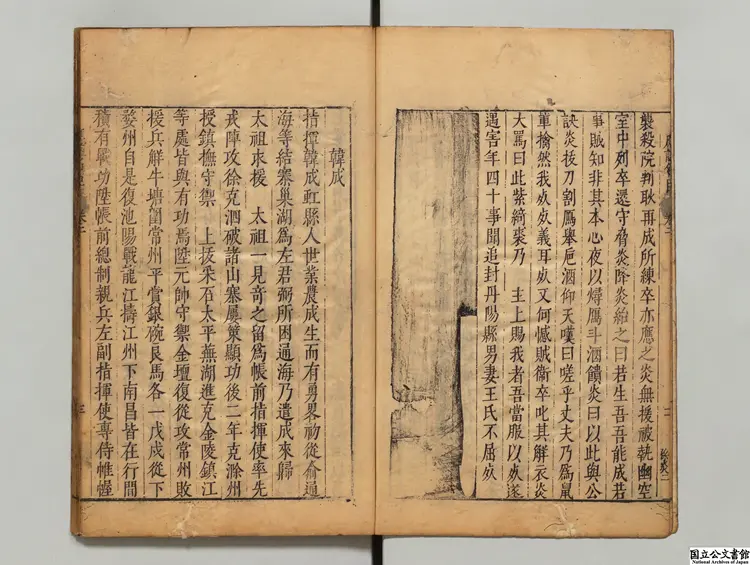 襲殺院判耿再成所練卒亦應之炎無援被執幽空
室中列卒還守脅炎降炎紿之曰若生吾吾能成若
事賊知非其本心夜以燖鴈斗酒饋炎曰以此與公
訣炎拔刀割鴈舉巵酒仰天嘆曰嗟乎丈夫乃為鼠
軰擒然我㱙㱙義耳㱙又何憾賊衞卒叱其解衣炎
大罵曰此紫綺裘乃 主上賜我者吾當服以㱙遂
遇害年四十事聞追封丹陽縣男妻王氏不屈㱙
三
韓成
指揮韓成虹縣人世業農成生而有勇畧初從俞通
海等結寨巢湖爲左君弼所困通海乃遣成來歸
太祖求援 太祖一見竒之留爲帳前指揮使率先
戎陣攻徐克泗破諸山寨屢策顯功後二年克滁州
授鎮撫守禦 上拔采石太平蕪湖進克金陵鎮江
等處皆與有功焉陞元帥守禦金壇復從攻常州敗
援兵鮮牛塘圍常州平賞銀碗良馬各一戊戌從下
婺州自是復池陽戰龍江擣江州下南昌皆在行間
積有戰功陞帳前總制親兵左副指揮使專侍帷幄
三
国立公文書館
National Archives of Japan